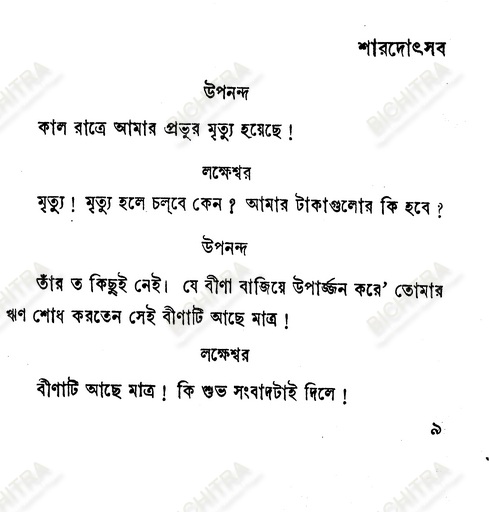 শারদোৎসব
উপনন্দ
কাল রাত্রে আমার প্রভুর মৃত্যু হয়েছে !
লক্ষেশ্বর
মৃত্যু ! মৃত্যু হলে চল্‌বে কেন ? আমার টাকাগুলোর কি হবে ?
উপনন্দ
তাঁর ত কিছুই নেই। যে বীণা বাজিয়ে উপার্জ্জন করে’ তোমার
ঋণ শোধ করতেন সেই বীণাটি আছে মাত্র !
লক্ষেশ্বর
বীণাটি আছে মাত্র ! কি শুভ সংবাদটাই দিলে !
৯
BICHITRA